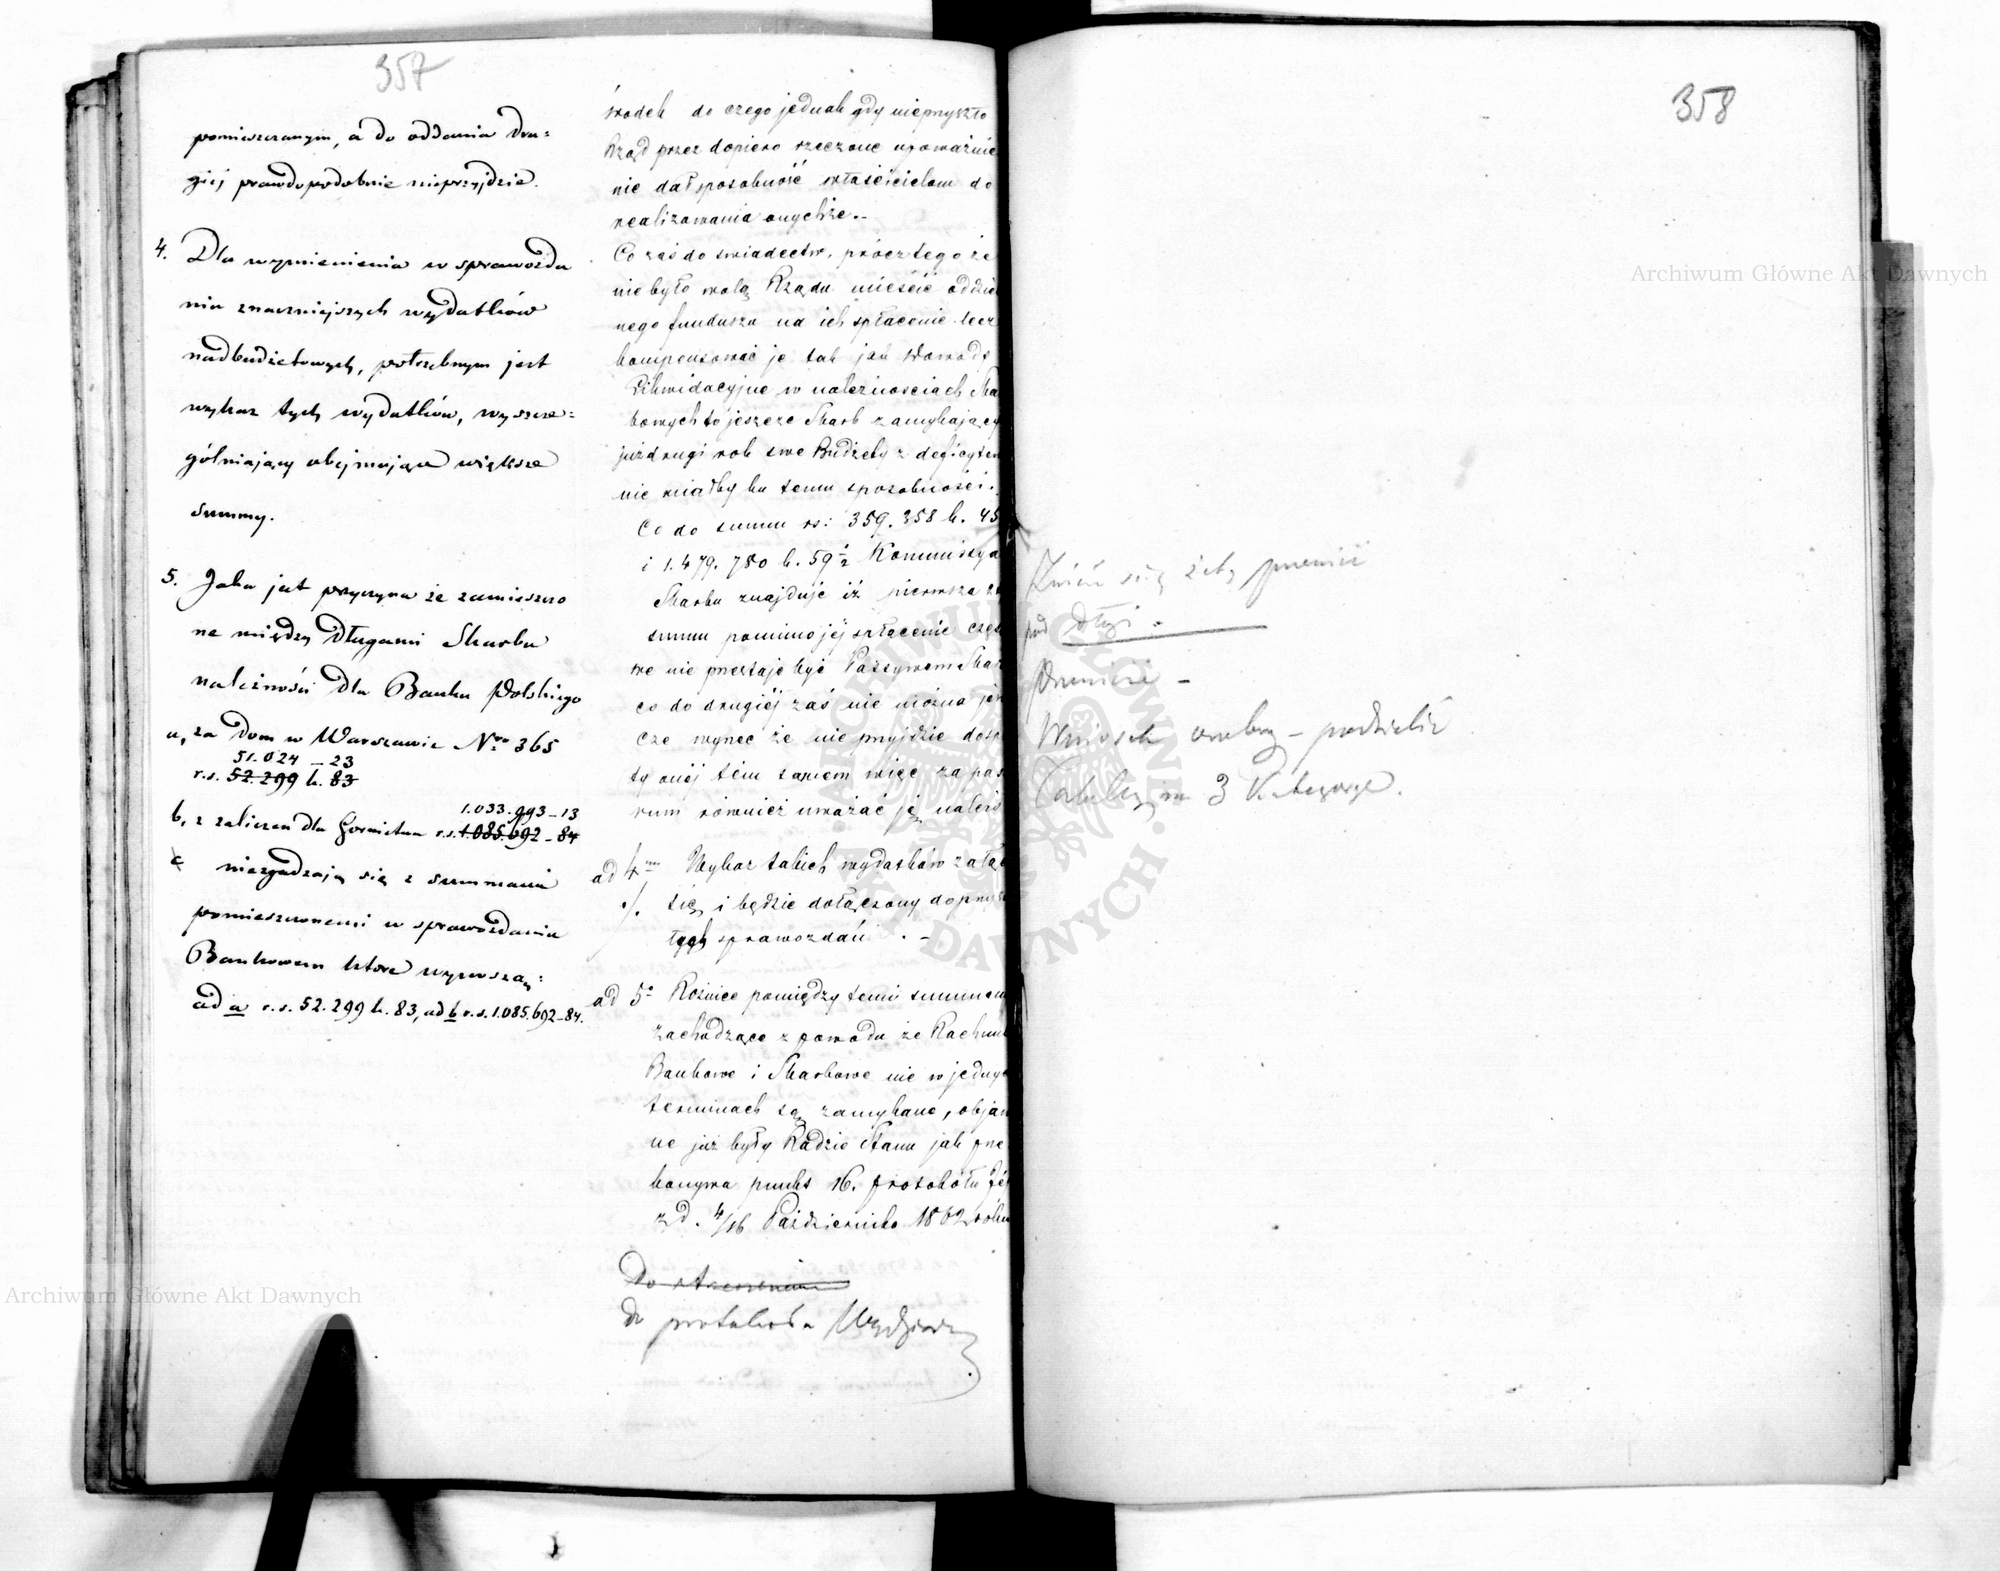 357
pomieszczanym, a do oddania dru=
giéj prawdopodobnie nieprzyjdzie.
4. Dla wymienienia w sprawozda
niu znaczniejszych wydatków
nadbudżetowych, potrzebnym jest
wykaz tych wydatków, wyszcze=
gólniający obejmujące większe
summy.
5. Jaka jest przyczyna że zamieszczo
ne między długami Skarbu
należności dla Banku Polskiego
a, za dom w Warszawie Nro 365
51.024 – 23
r.s. 52.299 k. 83
1.033.993 – 13
b, z zaliczeń dla Górnictwa r.s. 1.085.692 – 84
niezgadzają się z summami
pomieszczonemi w sprawozdaniu
Bankowem które wynoszą:
ad a r.s. 52.299 k. 83, ad b r.s. 1.085.692 – 84.
środek do czego jednak gdy nieprzyszło
Rząd przez dopiero rzeczone upoważnie
nie dał sposobność właścicielom do
realizowania onychże.–
Co zaś do świadectw, prócz tego że
nie było wolą Rządu mieścić oddziel
nego funduszu na ich spłacenie lecz
kompensować je tak jak dowody
Likwidacyjne w należnościach Ska
bowych to jeszcze Skarb zamykający
już drugi rok swe Budżety z deficytem
nie miałby ku temu sposobności.
Co do summ rs: 359.358 k. 45
i 1.479.780 k. 59½ Kommissya
Skarbu znajduje iż pierwsza z
summ pomimo jéj spłacenie częś
we nie przestaje być Passywem Skar
co do drugiéj zaś nie można jesz
cze wyrzec że nie przyjdzie do
ty onéj tém samem więc zapas
rum również uważać ją należ
ad 4um Wykaz takich wydatków załąc
./. się i będzie dołączony do przysz
łych sprawozdań. –
ad 5o Różnice pomiędzy temi summam
zachodzące z powodu że Rachunk
Bankowe i Skarbowe nie w jednyc
terminach są zamykane, objaśn
ne już były Radzie Stanu jak prze
konywa punkt 16. protokółu Jéj
z d. 4/16 Października 1862 roku
Do streszczenia
do protokółu
358
pod długi.
Przenieść –
Wniosek osobny – podzielić
Tabelę na 3 Kategorye.
Archiwum Główne Akt Dawnych
Archiwum Główne Akt Dawnych
ARCHIWUM GŁÓWNE AKT DAWNYCH